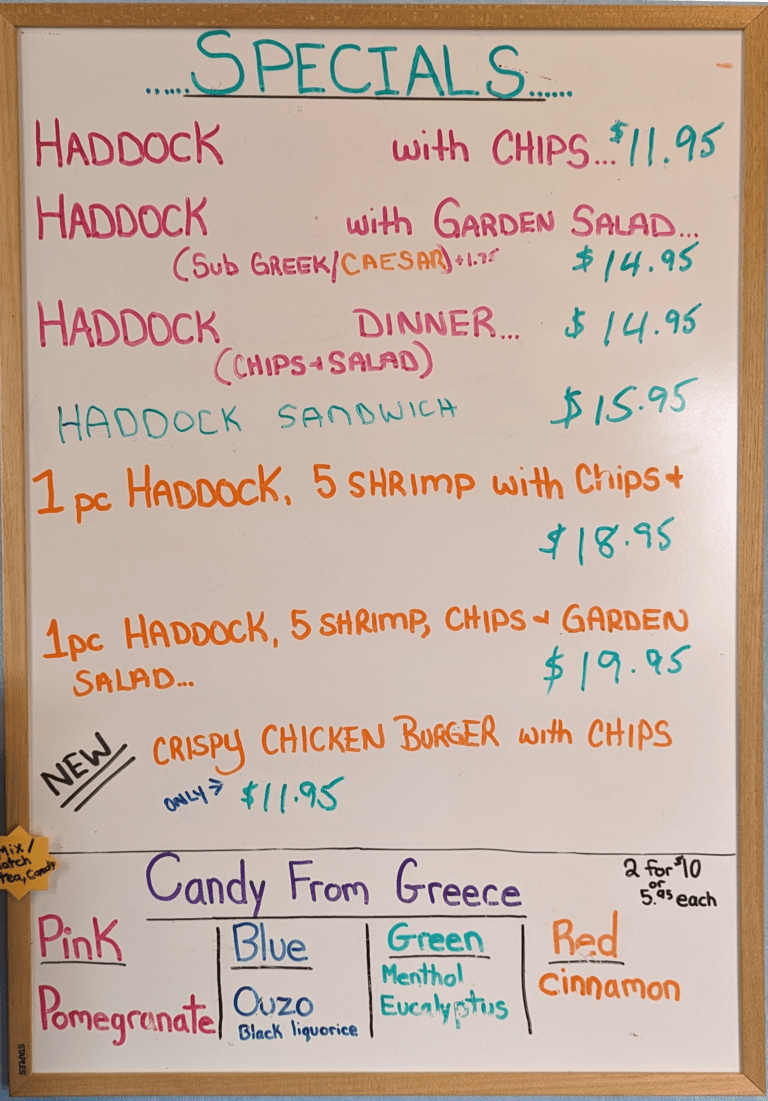 .....SPECIALS.....
HADDOCK with CHIPS...$11.95
HADDOCK with GARDEN SALAD...
(Sub GREEK/CAESAR)+1.75 $14.95
HADDOCK DINNER... $14.95
(CHIPS + SALAD)
HADDOCK SANDWICH $15.95
1 pc HADDOCK, 5 SHRIMP with Chips +
$18.95
1pc HADDOCK, 5 SHRIMP, CHIPS + GARDEN
SALAD... $19.95
NEW CRISPY CHICKEN BURGER with CHIPS
ONLY → $11.95
Mix/
atch
tea, Candy
Candy From Greece
2 for $10
or
5.95 each
Pink
Pomegranate
Blue
Ouzo
Black liquorice
Green
Menthol
Eucalyptus
Red
Cinnamon
STAPLES